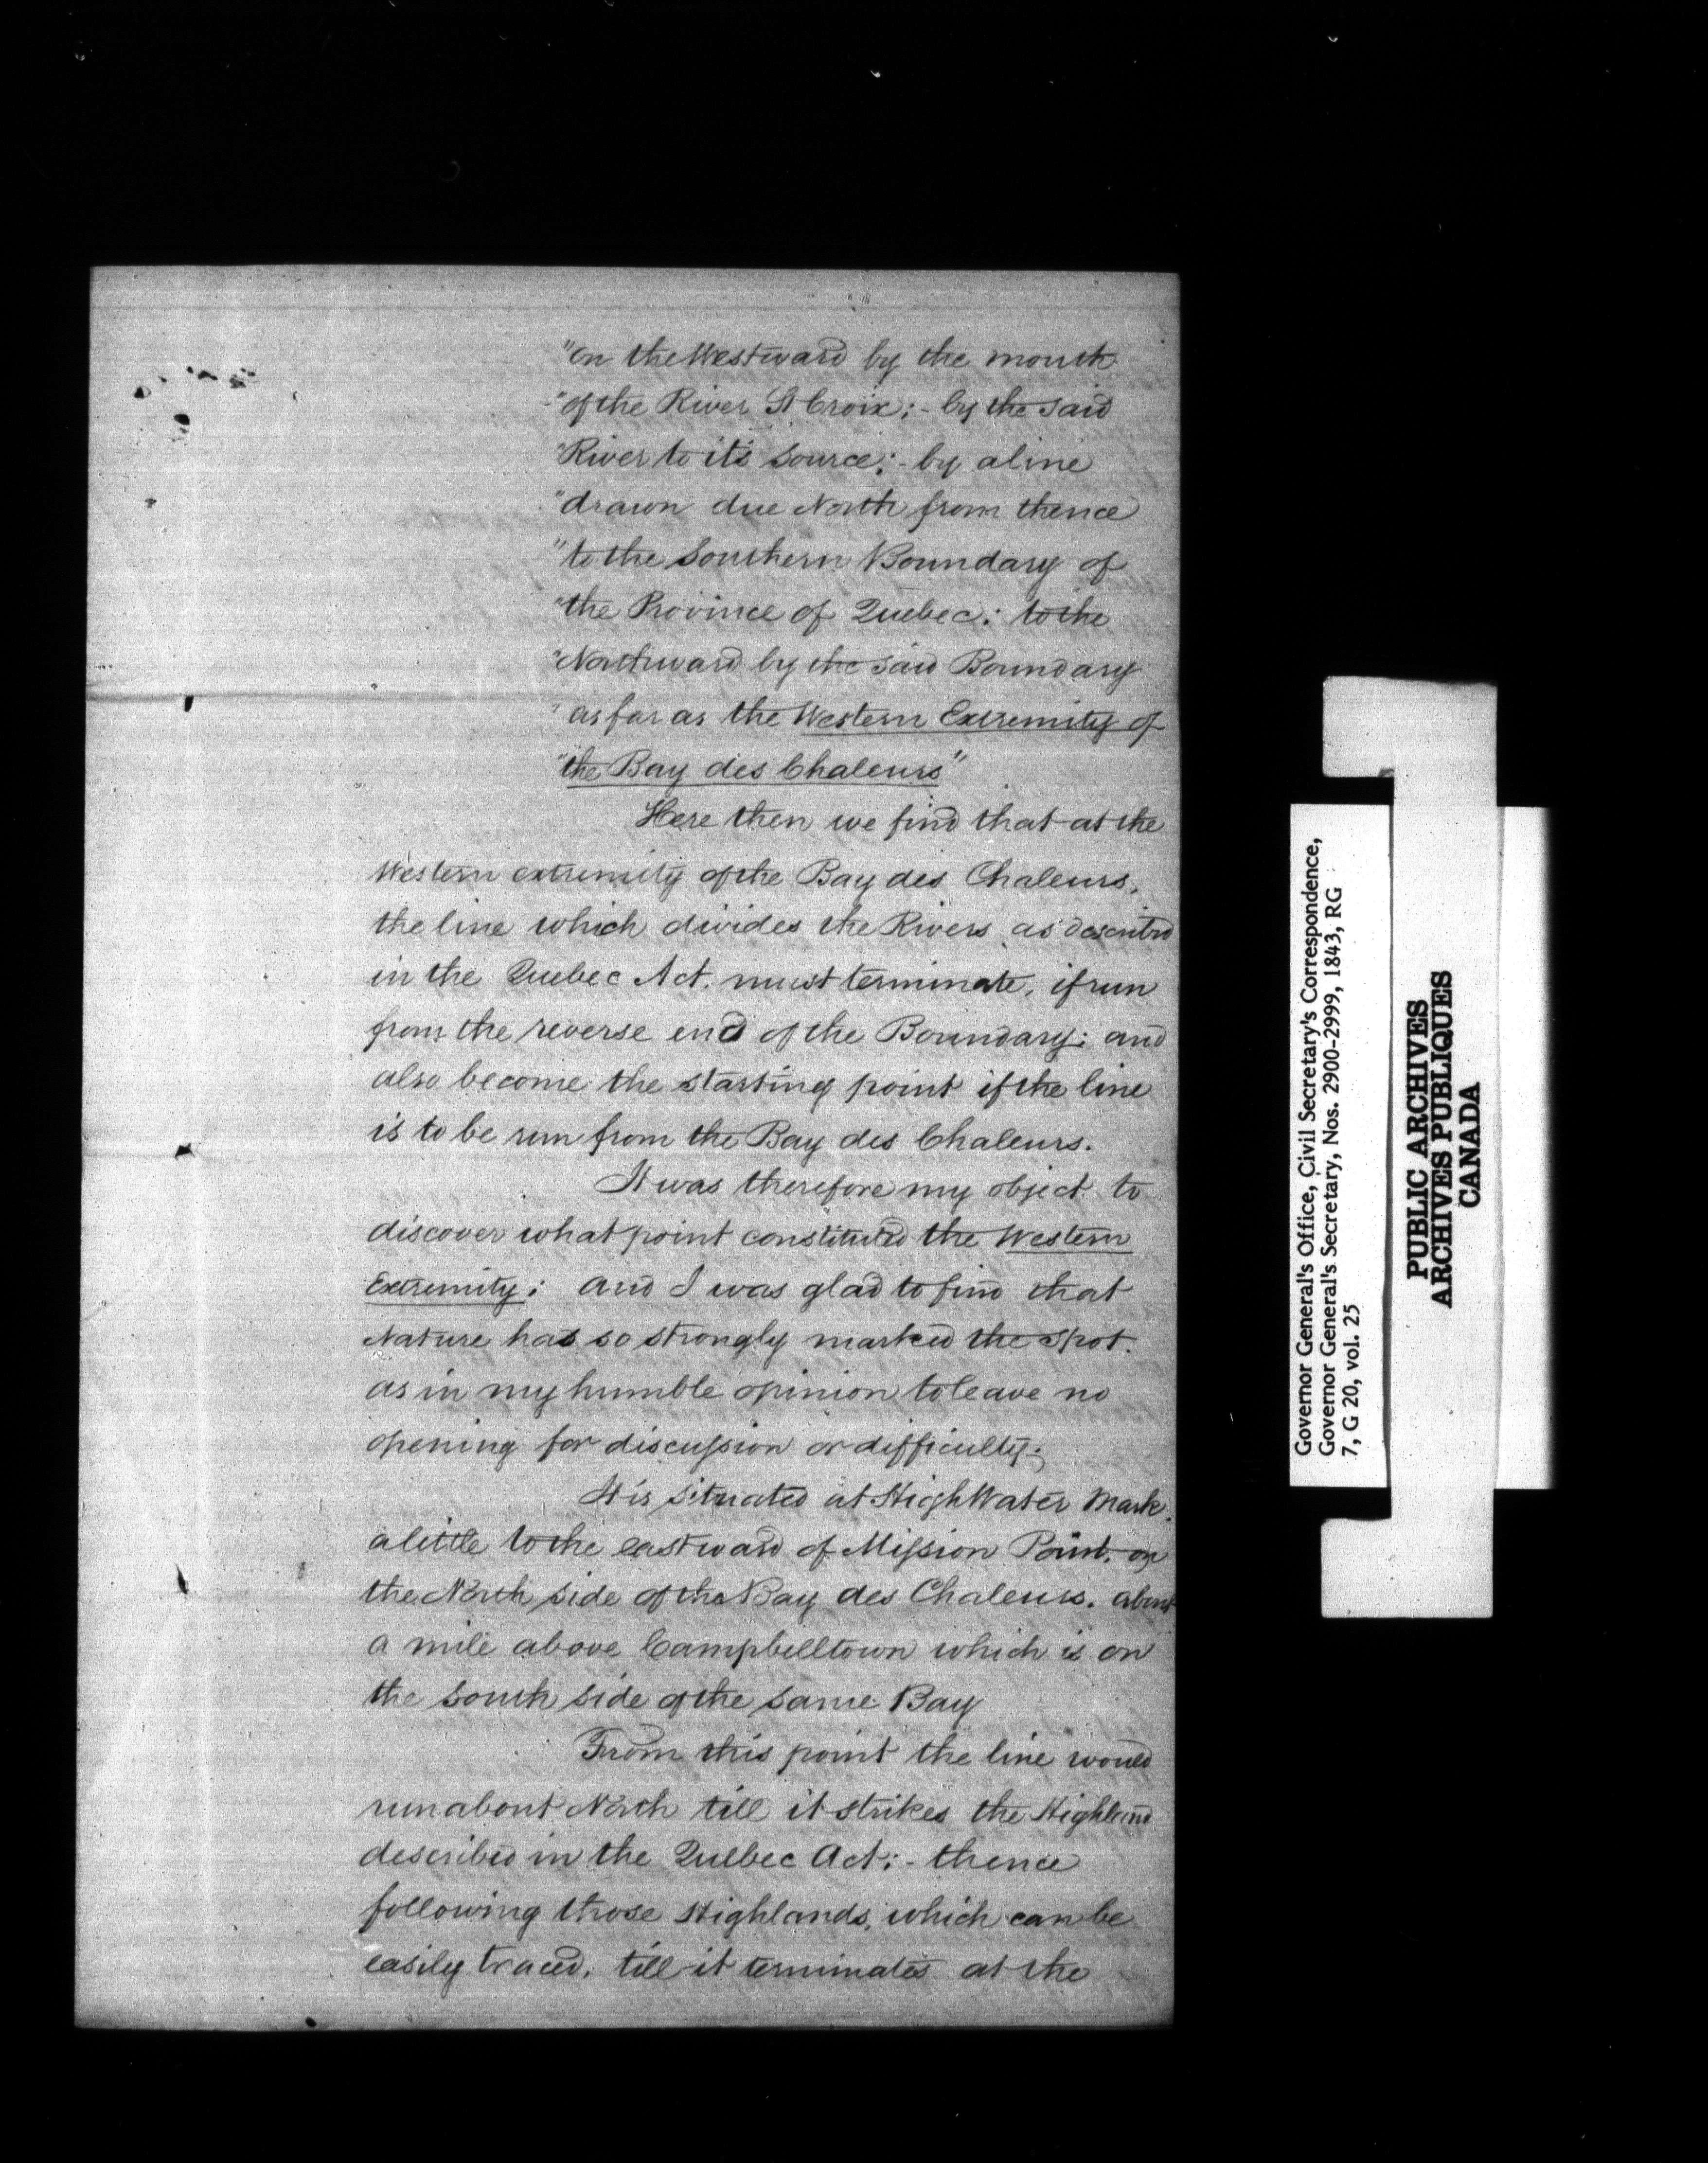 "on the Westward by the mouth
"of the River St Croix; - by the said
"River to it's source; - by a line
"drawn due North from thence
"to the Southern Boundary of
"the Province of Quebec: to the
"Northward by the said Boundary
"as far as the Western Extremity of
"the Bay des Chaleurs"
Here then we find that at the
Western extremity of the Bay des Chaleurs,
the line which divides the Rivers as described
in the Quebec Act. must terminate, if run
from the reverse end of the Boundary; and
also become the starting point if the line
is to be run from the Bay des Chaleurs.
It was therefore my object to
discover what point constituted the Western
Extremity; and I was glad to find that
Nature has so strongly marked the spot.
as in my humble opinion to leave no
opening for discussion or difficulty;
It is situated at High Water Mark.
a little to the eastward of Mission Point, on
the North side of the Bay des Chaleurs. about
a mile above Campbelltown which is on
the south side of the same Bay
From this point the line would
run about North till it strikes the Highland
described in the Quebec Act; - thence
following those Highlands, which can be
easily traced, till it terminates at the
Governor General's Office, Civil Secretary's Correspondence,
Governor General's Secretary, Nos. 2900-2999, 1843, RG
7, G 20, vol. 25
PUBLIC ARCHIVES
ARCHIVES PUBLIQUES
CANADA